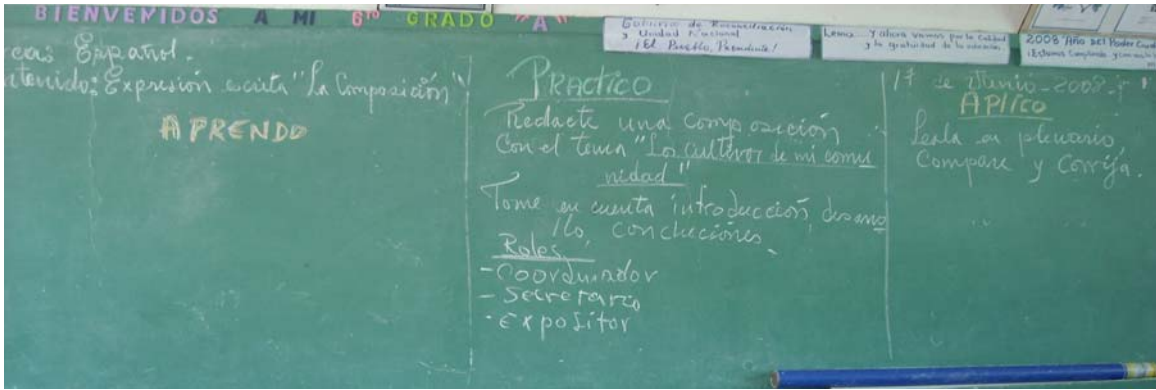 BIENVENIDOS A MI 6TO GRADO "A"
Gobierno de Reconciliación
y Unidad Nacional
¡El Pueblo, Presidente!
Lema: Y ahora vamos por la calidad
y la gratuidad de la educación.
2008 "Año del Poder
Español.
Expresión escrita "La Composición"
APRENDO
PRACTICO
Redacte una composición
Con el tema "Los cultivos de mi comu
nidad"
Tome en cuenta introducción, desarro
llo, conclusiones
Roles
- Coordinador
- Secretario
- Expositor
de Junio - 2008
APLICO
Leala en plenario,
Compare y Corrija.